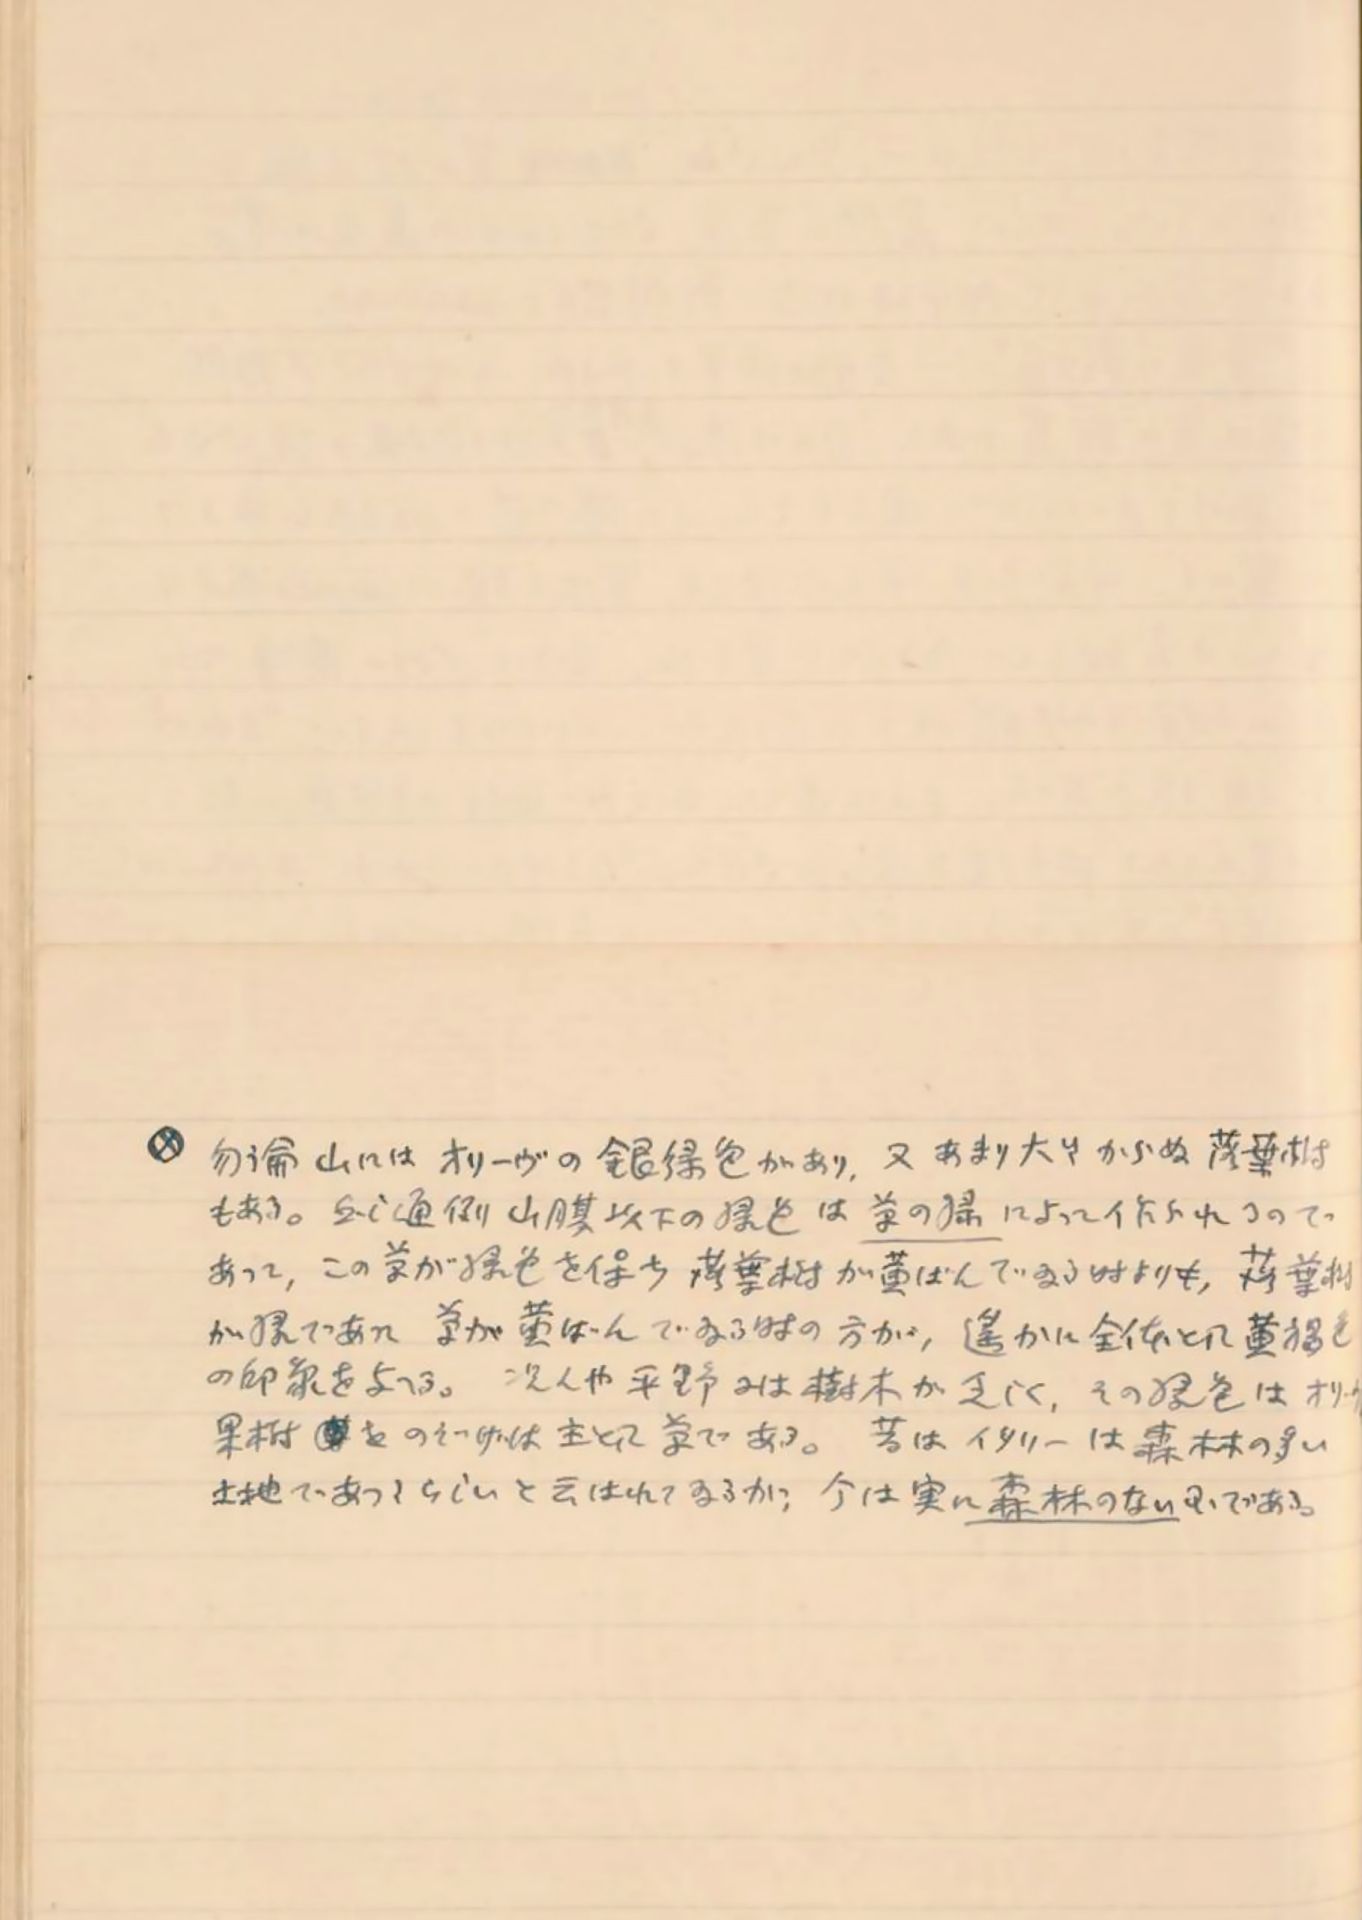 ⊗ 勿論 山には オリーヴの 銀緑色があり, 又 あまり大きからぬ 落葉樹
もある。然し通例 山腹以下の緑色 は 草の緑 によって作られるので
あって, この草が緑色を保ち 落葉樹が黄ばんでゐる時よりも, 落葉樹
が緑であって 草が黄ばんでゐる時の方が, 遙かに全体として黄褐色
の印象を与へる。 況んや平野には樹木が乏しく, その緑色は オリーヴ
果樹 をのぞけば主として草である。 昔は イタリーは森林の多い
土地であつたらしいと云はれてゐるが, 今は実に森林のない国である